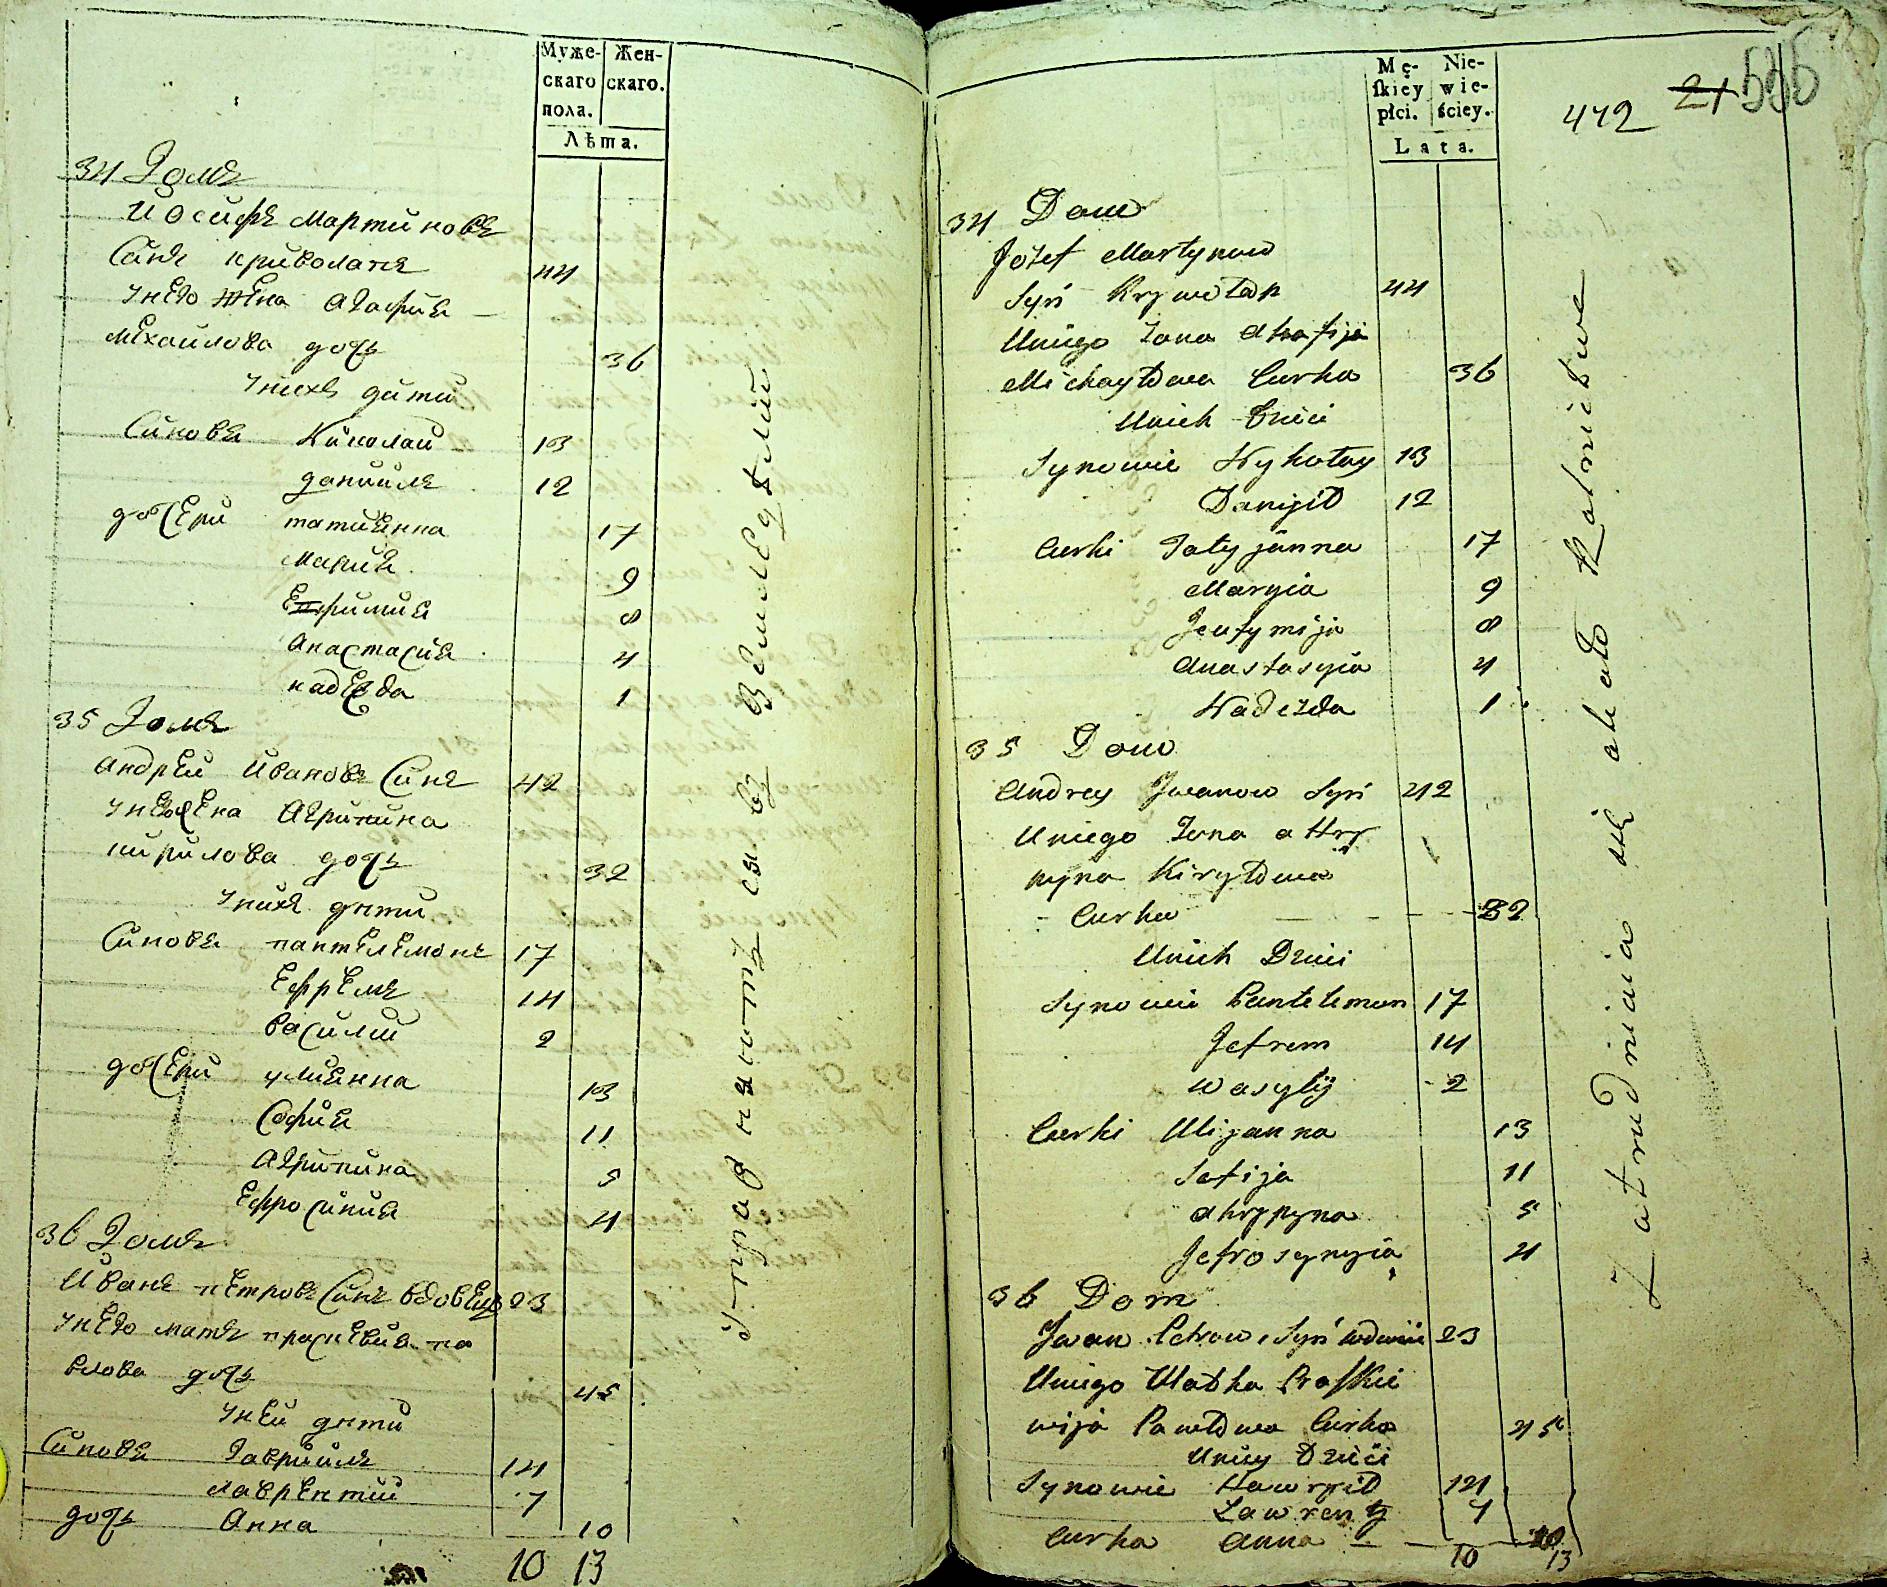 Муже-
скаго
пола.
Жен-
скаго.
Лѣта.
34 Домъ
Иосифъ Мартиновъ
Синъ криволапъ 44
Унего жена Агафия
Михаилова дочь 36
Унихъ дити
Синовя Николай 13
Даниилъ 12
дочери татиянна 17
Мария 9
Ефимия 8
Анастасия 4
надежда 1
35 Домъ
Андрей Ивановъ Синъ 42
Унего жена Агрипина
кирилова дочь 32
Унихъ дѣти
Синовя пантелемонъ 17
Ефремъ 14
Василий 2
дочери улиянна 13
София 11
Агрипина 5
Ефросиния 4
36 Домъ
Иванъ петровъ Синъ вдовецъ 23
Унего матъ праскевия па
влова дочь 45
Уней дѣти
Синовя Гавриилъ 14
Лаврентий 7
дочь Анна 10
10 13
Упражняютъся въ Земледѣлии
Mę-
skiey
płci.
Nie-
wie-
ściey.
Lata.
472 21 535
34 Dom
Jozef Martynow
Syn Krywołap 44
Uniego Zona Ahafija
Michayłowa Curka 36
Unich Dzieci
Synowie Nykołay 13
Danijił 12
Curki Tatyjanna 17
Maryia 9
Jeufymija 8
Anastasyia 4
Nadezda 1
35 Dom
Andrey Jwanow Syn 42
Uniego Zona Ahry
pyna Kiryłowa
Curka 32
Unich Dzieci
Synowie Pantelemon 17
Jefrem 14
Wasylij 2
Curki Ulijanna 13
Sofija 11
Ahrypyna 5
Jefrosynyia 4
36 Dom
Jwan Petrow Syn wdowiec 23
Uniego Matka Praskie
wija Pawłowa Curka 45
Uniey Dzieci
Synowie Hawryił 14
Lawrenty 7
Curka Anna 10
10 13
Zatrudniaia się okało Rolnictwa